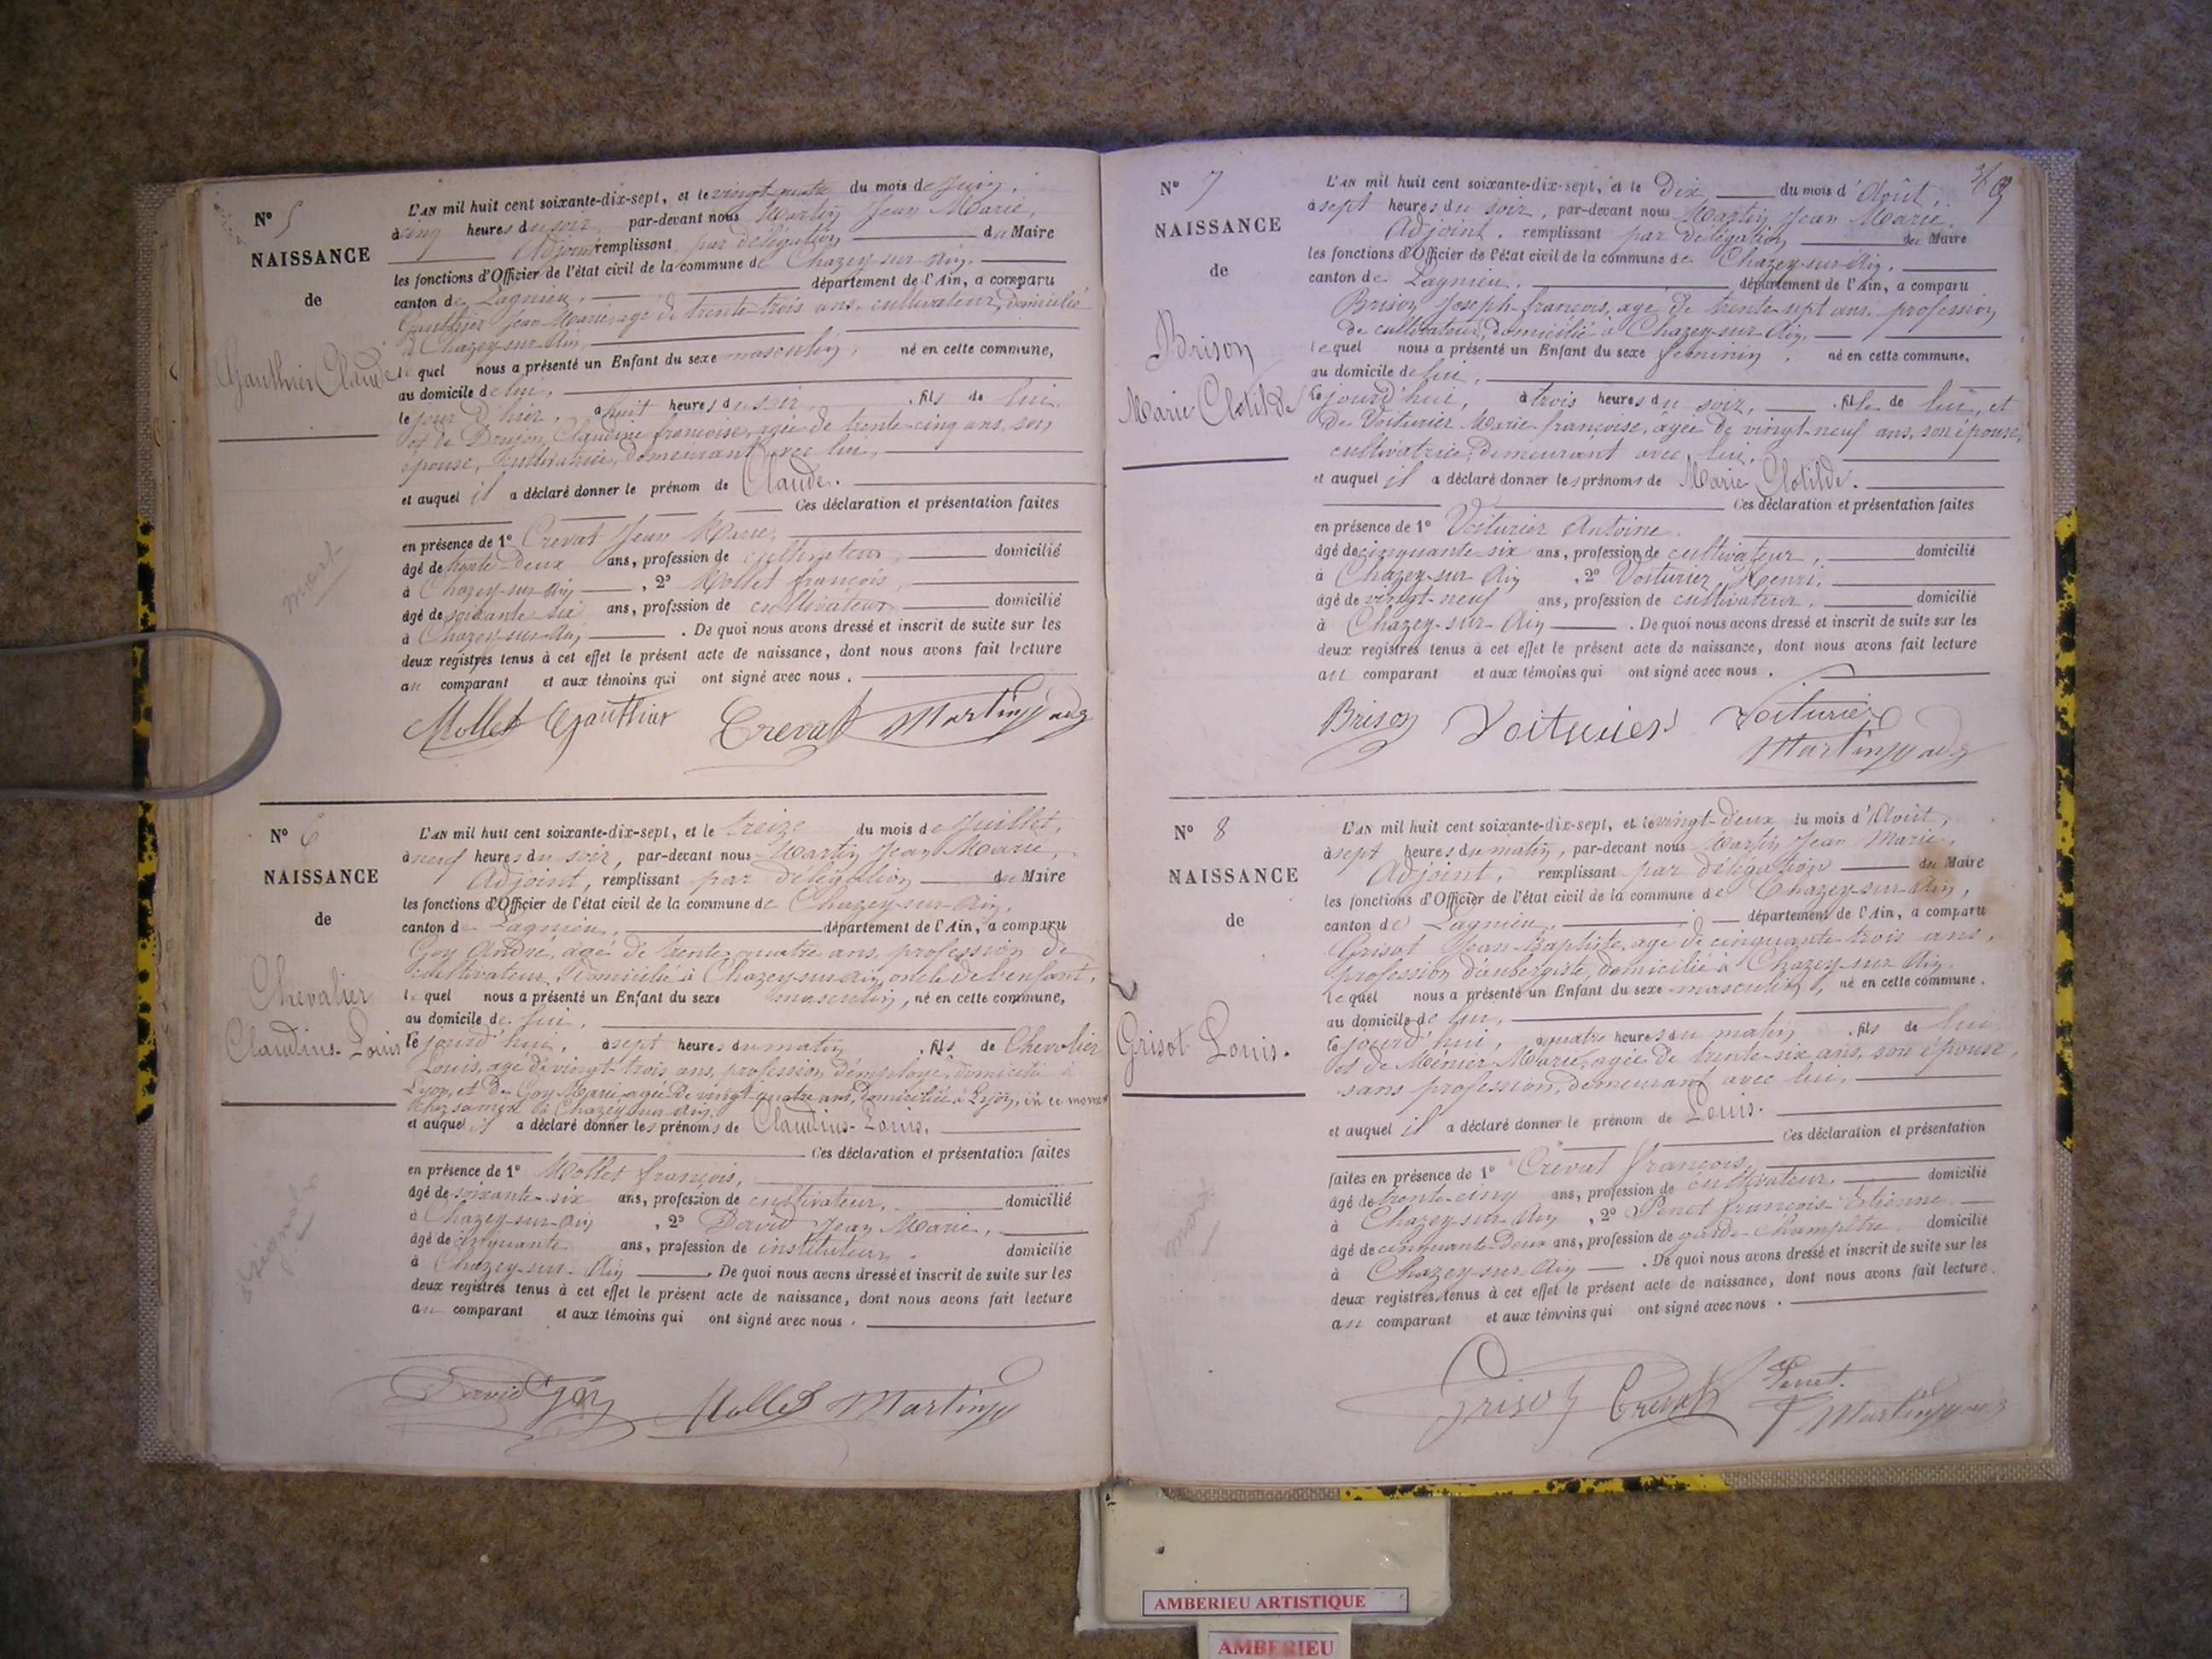 N° 5
NAISSANCE
de
Gauthier Claude
mort
L'AN mil huit cent soixante-dix-sept, et le vingt-quatre du mois de Juin,
à cinq heures du soir, par-devant nous Martin Jean Marie,
Adjoint remplissant par délégation du Maire
les fonctions d'Officier de l'état civil de la commune de Chazey-sur-Ain,
canton de Lagnieu, département de l'Ain, a comparu
Gauthier Jean Marie, agé de trente-trois ans, cultivateur, domicilié
à Chazey-sur-Ain,
lequel nous a présenté un Enfant du sexe masculin, né en cette commune,
au domicile de lui,
le jour d'hier, à huit heures du soir, fils de lui
et de Boujon, Claudine françoise, agée de trente-cinq ans, son
épouse, cultivatrice, demeurant avec lui,
et auquel il a déclaré donner le prénom de Claude.
Ces déclaration et présentation faites
en présence de 1° Crevat Jean Marie,
âgé de trente-deux ans, profession de cultivateur, domicilié
à Chazey-sur-Ain, 2° Mollet françois,
âgé de soixante-six ans, profession de cultivateur domicilié
à Chazey-sur-Ain, . De quoi nous avons dressé et inscrit de suite sur les
deux registres tenus à cet effet le présent acte de naissance, dont nous avons fait lecture
au comparant et aux témoins qui ont signé avec nous .
Mollet Gauthier Crevat Martin adj
N° 6
NAISSANCE
de
Chevalier
Claudius-Louis
L'AN mil huit cent soixante-dix-sept, et le treize du mois de Juillet,
à neuf heures du soir, par-devant nous Martin Jean Marie,
Adjoint, remplissant par délégation du Maire
les fonctions d'Officier de l'état civil de la commune de Chazey-sur-Ain,
canton de Lagnieu, département de l'Ain, a comparu
Goy André, agé de trente-quatre ans, profession de
cultivateur, domicilié à Chazey-sur-Ain, oncle de l'enfant,
lequel nous a présenté un Enfant du sexe masculin, né en cette commune,
au domicile de lui,
le jourd'hui, à sept heures du matin, fils de Chevalier
Louis, agé de vingt-trois ans, profession d'employé, domicilié à
Lyon, et de Goy Marie, agée de vingt-quatre ans, domiciliée à Lyon, en ce moment
chez sa mère à Chazey-sur-Ain.
et auquel il a déclaré donner les prénoms de Claudius-Louis.
Ces déclaration et présentation faites
en présence de 1° Mollet françois,
âgé de soixante-six ans, profession de cultivateur, domicilié
à Chazey-sur-Ain, 2° David Jean Marie,
âgé de cinquante ans, profession de instituteur, domicilié
à Chazey-sur-Ain . De quoi nous avons dressé et inscrit de suite sur les
deux registres tenus à cet effet le présent acte de naissance, dont nous avons fait lecture
au comparant et aux témoins qui ont signé avec nous .
David Goy Mollet Martin
N° 7
NAISSANCE
de
Brison
Marie Clotilde
L'AN mil huit cent soixante-dix-sept, et le Dix du mois d'Août,
à sept heures du soir, par-devant nous Martin Jean Marie,
Adjoint, remplissant par délégation du Maire
les fonctions d'Officier de l'état civil de la commune de Chazey-sur-Ain,
canton de Lagnieu, département de l'Ain, a comparu
Brison Joseph-françois, agé de trente-sept ans, profession
de cultivateur, domicilié à Chazey-sur-Ain,
lequel nous a présenté un Enfant du sexe féminin, né en cette commune,
au domicile de lui,
le jourd'hui, à trois heures du soir, fille de lui, et
de Voiturier Marie-françoise, agée de vingt-neuf ans, son épouse,
cultivatrice, demeurant avec lui.
et auquel il a déclaré donner les prénoms de Marie Clotilde.
Ces déclaration et présentation faites
en présence de 1° Voiturier Antoine,
âgé de cinquante-six ans, profession de cultivateur, domicilié
à Chazey-sur-Ain, 2° Voiturier Henri,
âgé de vingt-neuf ans, profession de cultivateur, domicilié
à Chazey-sur-Ain . De quoi nous avons dressé et inscrit de suite sur les
deux registres tenus à cet effet le présent acte de naissance, dont nous avons fait lecture
au comparant et aux témoins qui ont signé avec nous .
Brison Voiturier Voiturier
Martin adj
N° 8
NAISSANCE
de
Grisot Louis.
mort
L'AN mil huit cent soixante-dix-sept, et le vingt-deux du mois d'Août,
à sept heures du matin, par-devant nous Martin Jean Marie,
Adjoint, remplissant par délégation du Maire
les fonctions d'Officier de l'état civil de la commune de Chazey-sur-Ain,
canton de Lagnieu, département de l'Ain, a comparu
Grisot Jean-Baptiste, agé de cinquante-trois ans,
profession d'aubergiste, domicilié à Chazey-sur-Ain,
lequel nous a présenté un Enfant du sexe masculin, né en cette commune,
au domicile de lui,
le jourd'hui, à quatre heures du matin, fils de lui
et de Ménier Marie, agée de trente-six ans, son épouse,
sans profession, demeurant avec lui,
et auquel il a déclaré donner le prénom de Louis.
Ces déclaration et présentation
faites en présence de 1° Crevat françois,
âgé de trente-cinq ans, profession de cultivateur, domicilié
à Chazey-sur-Ain, 2° Penet françois-Etienne
âgé de cinquante-deux ans, profession de garde-champêtre domicilié
à Chazey-sur-Ain . De quoi nous avons dressé et inscrit de suite sur les
deux registres tenus à cet effet le présent acte de naissance, dont nous avons fait lecture
au comparant et aux témoins qui ont signé avec nous .
Grisot Crevat Penet
Martin adj
AMBERIEU ARTISTIQUE
AMBERIEU